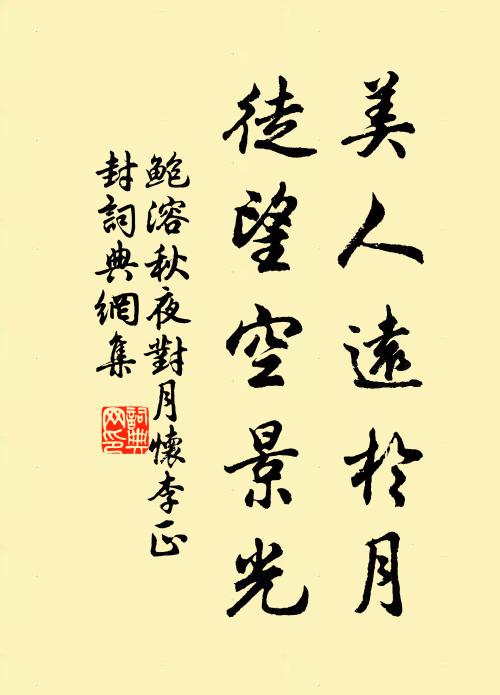 美人遠於月
徒望空景光
鮑溶秋夜對月懷李正
封詞典網集
詞典網印